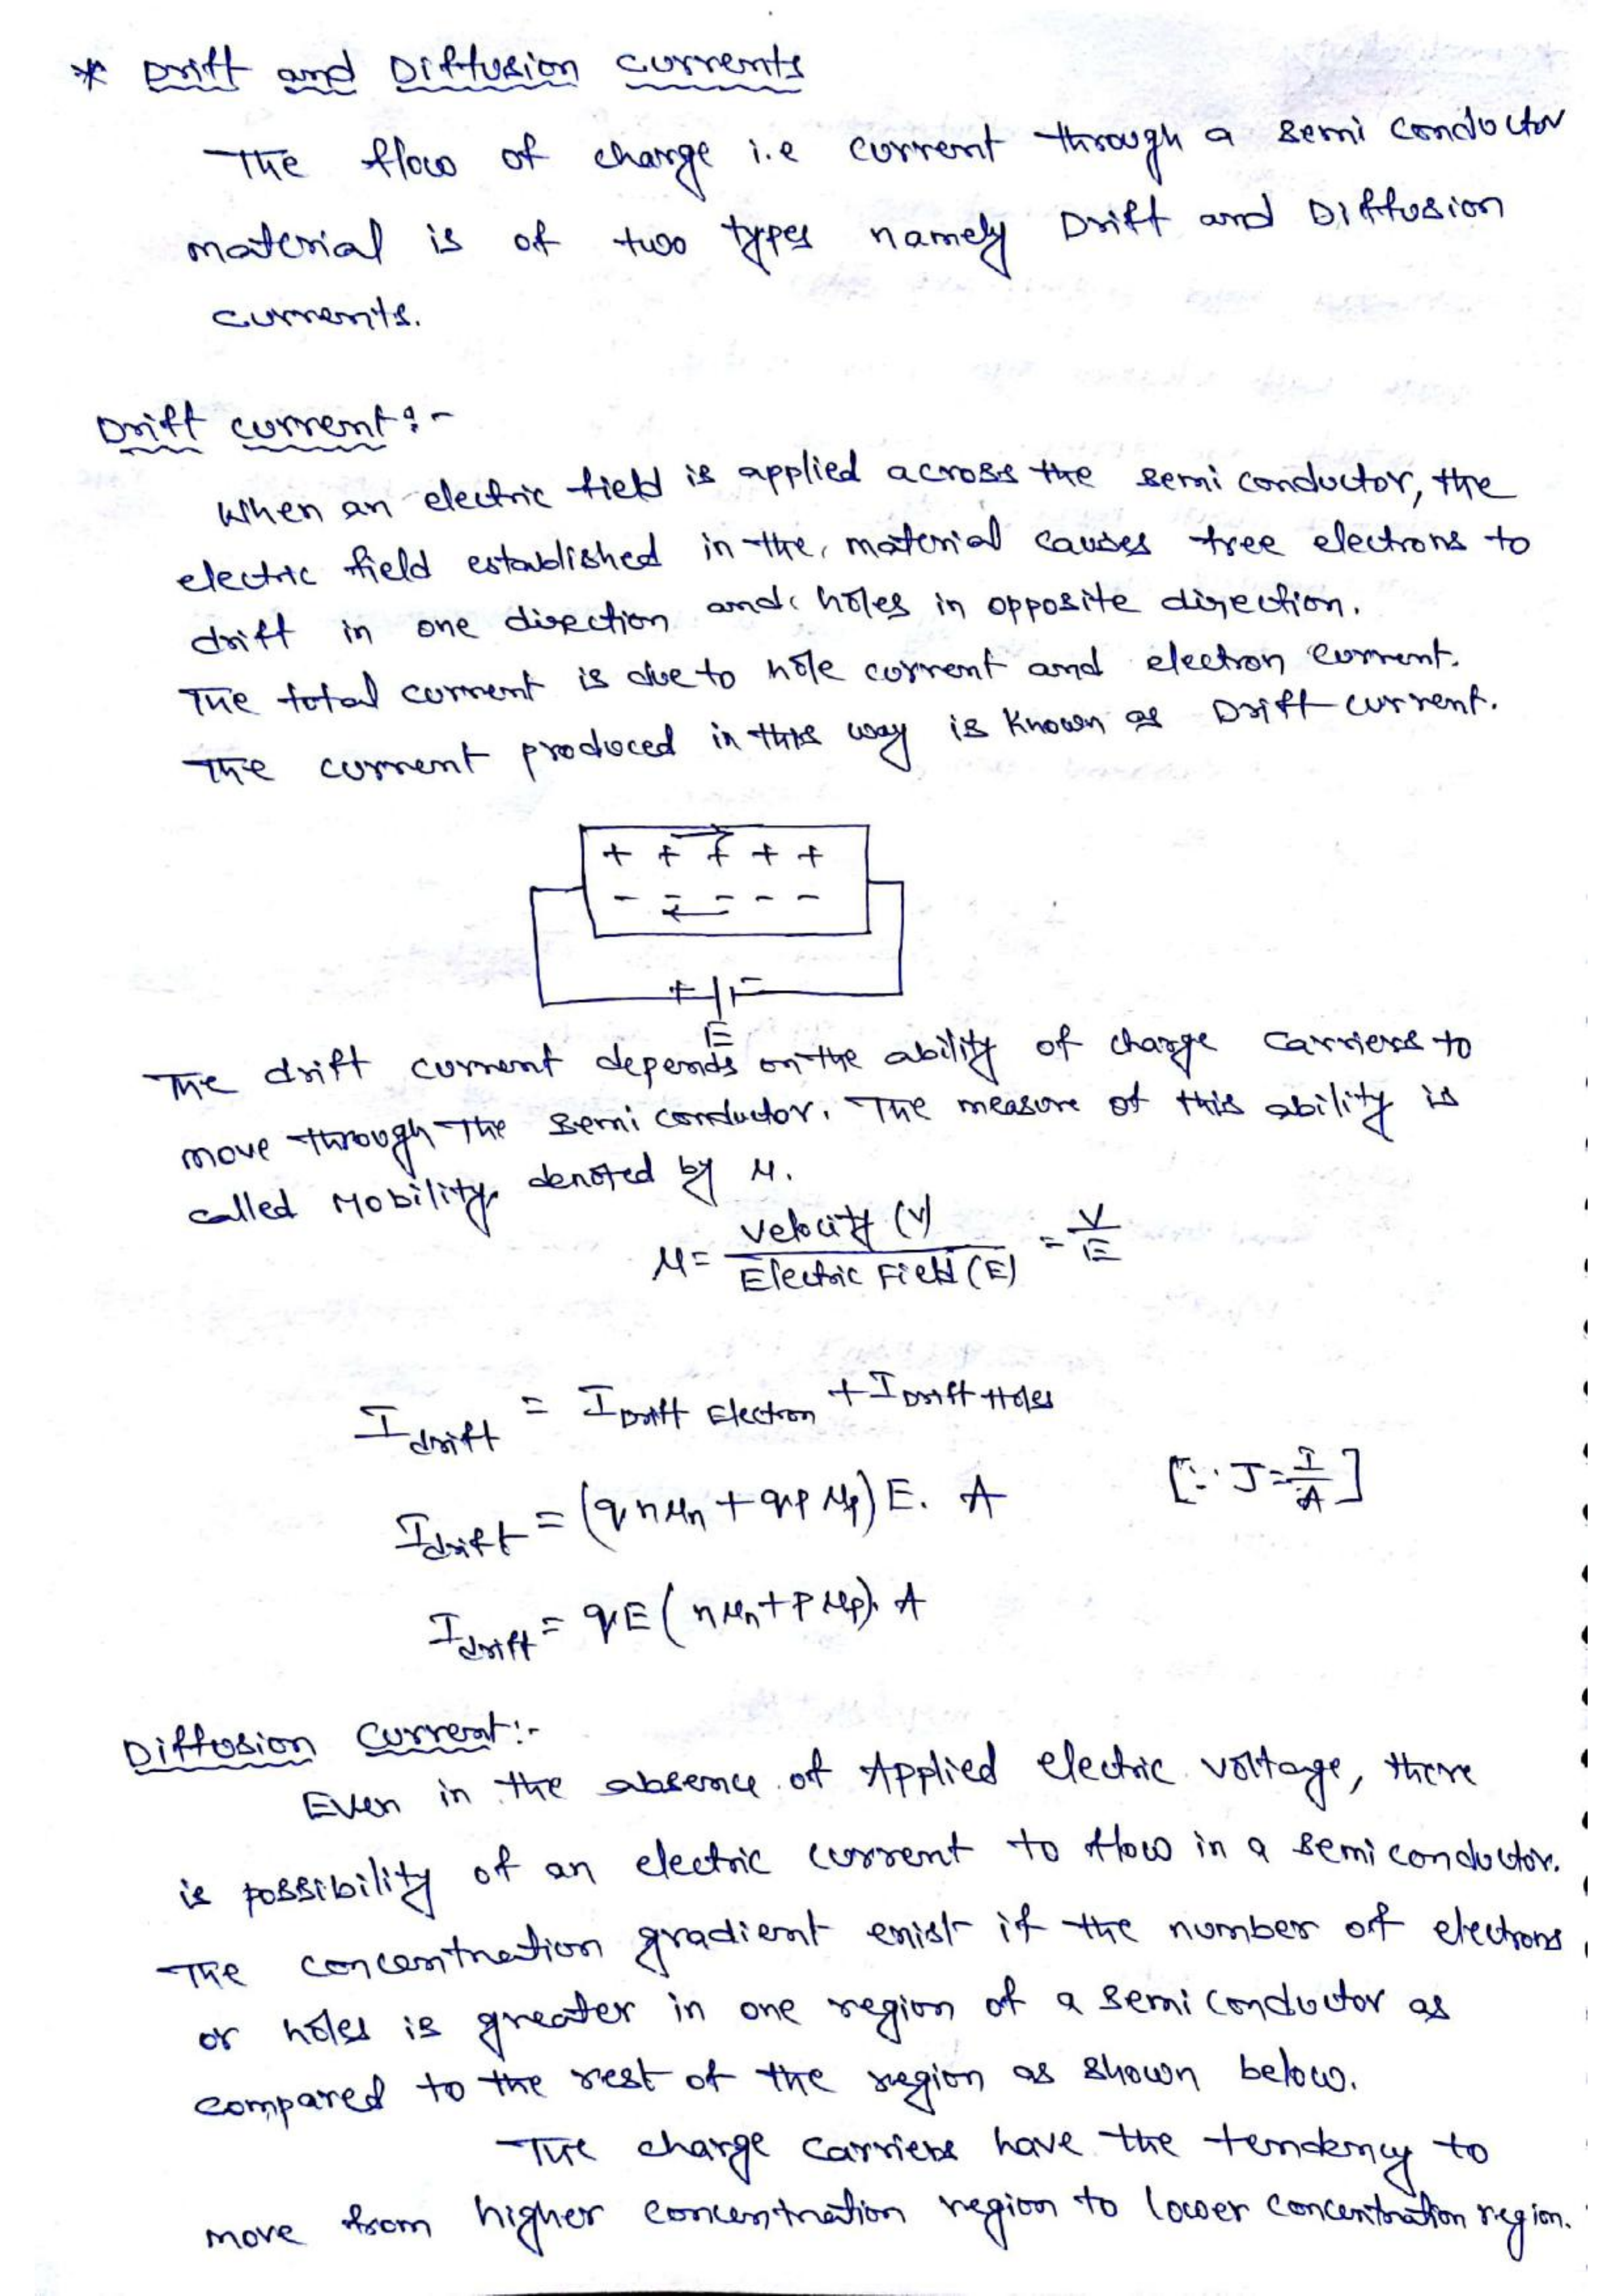 * Drift and Diffusion currents
The flow of charge i.e current through a semi conductor
material is of two types namely Drift and Diffusion
currents.
Drift current:-
When an electric field is applied across the semi conductor, the
electric field established in the material causes free electrons to
drift in one direction and holes in opposite direction.
The total current is due to hole current and electron current.
The current produced in this way is known as Drift current.
+ + + + +
- - - - -
+ -
E
The drift current depends on the ability of charge carriers to
move through the semi conductor. The measure of this ability is
called Mobility, denoted by μ.
μ = Velocity (V) / Electric Field (E) = V/E
I drift = I Drift Electron + I Drift Holes
I drift = (q n μn + q p μp) E. A [∵ J = I/A]
I drift = qE (n μn + P μp). A
Diffusion Current:-
Even in the absence of Applied electric voltage, there
is possibility of an electric current to flow in a semi conductor.
The concentration gradient exist if the number of electrons
or holes is greater in one region of a semi conductor as
compared to the rest of the region as shown below.
The charge carriers have the tendency to
move from higher concentration region to lower concentration region.